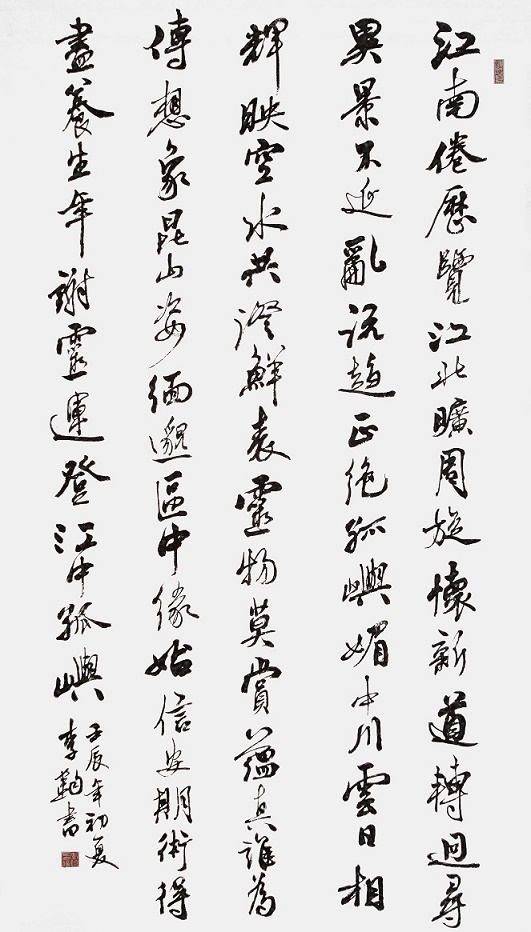 江南倦歷覽江北曠周旋懷新道轉迴尋
異景不延亂流趨正絕孤嶼媚中川雲日相
輝映空水共澄鮮表靈物莫賞蘊真誰為
傳想象昆山姿緬邈區中緣始信安期術得
盡養生年謝靈運登江中孤嶼
壬辰年初夏
李書